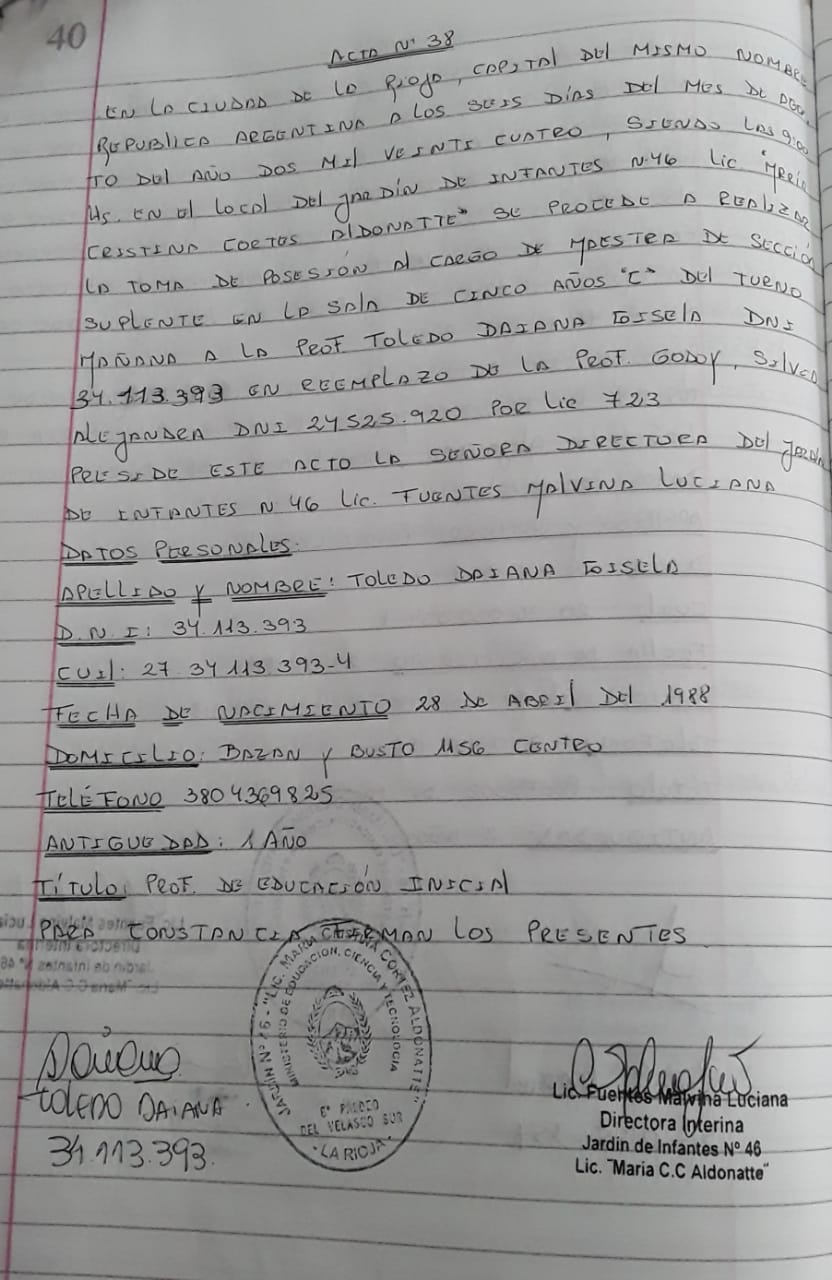 40
ACTA N° 38
EN LA CIUDAD DE LA RIOJA, CAPITAL DEL MISMO NOMBRE
REPUBLICA ARGENTINA A LOS SEIS DÍAS DEL MES DE AGOS
TO DEL AÑO DOS MIL VEINTI CUATRO, SIENDO LAS 9:00
HS. EN EL LOCAL DEL JARDIN DE INFANTES N.46 Lic "MARIA
CRISTINA CORTES ALDONATTE" SE PROCEDE A REALIZAR
LA TOMA DE POSESIÓN AL CARGO DE MAESTRA DE SECCIÓN
SUPLENTE EN LA SALA DE CINCO AÑOS "C" DEL TURNO
MAÑANA A LA PROF TOLEDO DAIANA GISELA DNI
34.113.393 EN REEMPLAZO DE LA PROF. GODOY, SILVEA
ALEJANDRA DNI 24525.920 POR Lic 723
PRESIDE ESTE ACTO LA SEÑORA DIRECTORA DEL JARDIN
DE INFANTES N 46 Lic. FUENTES MALVINA LUCIANA
DATOS PERSONALES:
APELLIDO Y NOMBRE: TOLEDO DAIANA GISELA
D.N.I: 34.113.393
CUIL: 27 34 113 393-4
FECHA DE NACIMIENTO 28 DE ABRIL DEL 1988
DOMICILIO: BAZAN Y BUSTO 1156 CENTRO
TELÉFONO 3804369825
ANTIGUEDAD: 1 AÑO
TÍTULO: PROF. DE EDUCACIÓN INICIAL
PARA CONSTANCIA FIRMAN LOS PRESENTES
JARDIN Nº 46 - "LIC. MARIA CRISTINA CORTEZ ALDONATTE"
MINISTERIO DE EDUCACION, CIENCIA Y TECNOLOGIA
DEL VELASCO SUR
LA RIOJA
Daiana
TOLEDO DAIANA
34.113.393.
Lic. Fuentes Malvina Luciana
Directora Interina
Jardin de Infantes Nº 46
Lic. "Maria C.C Aldonatte"